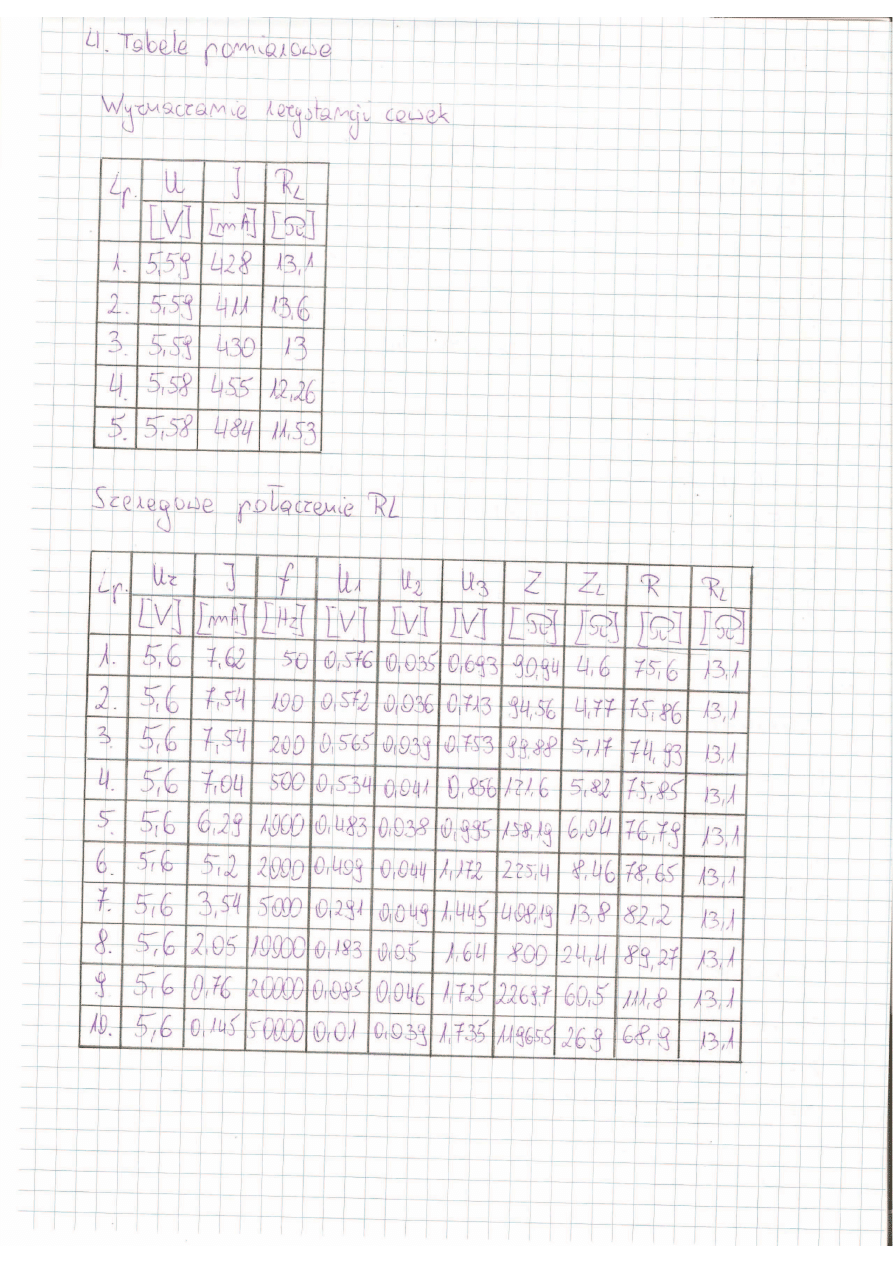 4. Tabele pomiarowe
Wyznaczanie rezystancji cewek
Lp. U I RL
[V] [mA] [Ω]
1. 5,59 428 13,1
2. 5,59 411 13,6
3. 5,59 430 13
4. 5,58 455 12,26
5. 5,58 484 11,53
Szeregowe połączenie RL
Lp. Uz I f U1 U2 U3 Z ZL R RL
[V] [mA] [Hz] [V] [V] [V] [Ω] [Ω] [Ω] [Ω]
1. 5,6 7,62 50 0,576 0,035 0,693 90,94 4,6 75,6 13,1
2. 5,6 7,54 100 0,572 0,036 0,713 94,56 4,77 75,86 13,1
3. 5,6 7,54 200 0,565 0,039 0,753 99,88 5,17 74,93 13,1
4. 5,6 7,04 500 0,534 0,041 0,856 121,6 5,82 75,85 13,1
5. 5,6 6,29 1000 0,483 0,038 0,995 158,19 6,04 76,79 13,1
6. 5,6 5,2 2000 0,409 0,044 1,172 225,4 8,46 78,65 13,1
7. 5,6 3,54 5000 0,291 0,049 1,445 408,19 13,8 82,2 13,1
8. 5,6 2,05 10000 0,183 0,05 1,64 800 24,4 89,27 13,1
9 5,6 0,76 20000 0,085 0,046 1,725 2269,7 60,5 111,8 13,1
10. 5,6 0,145 50000 0,01 0,039 1,735 11965,5 269 68,9 13,1